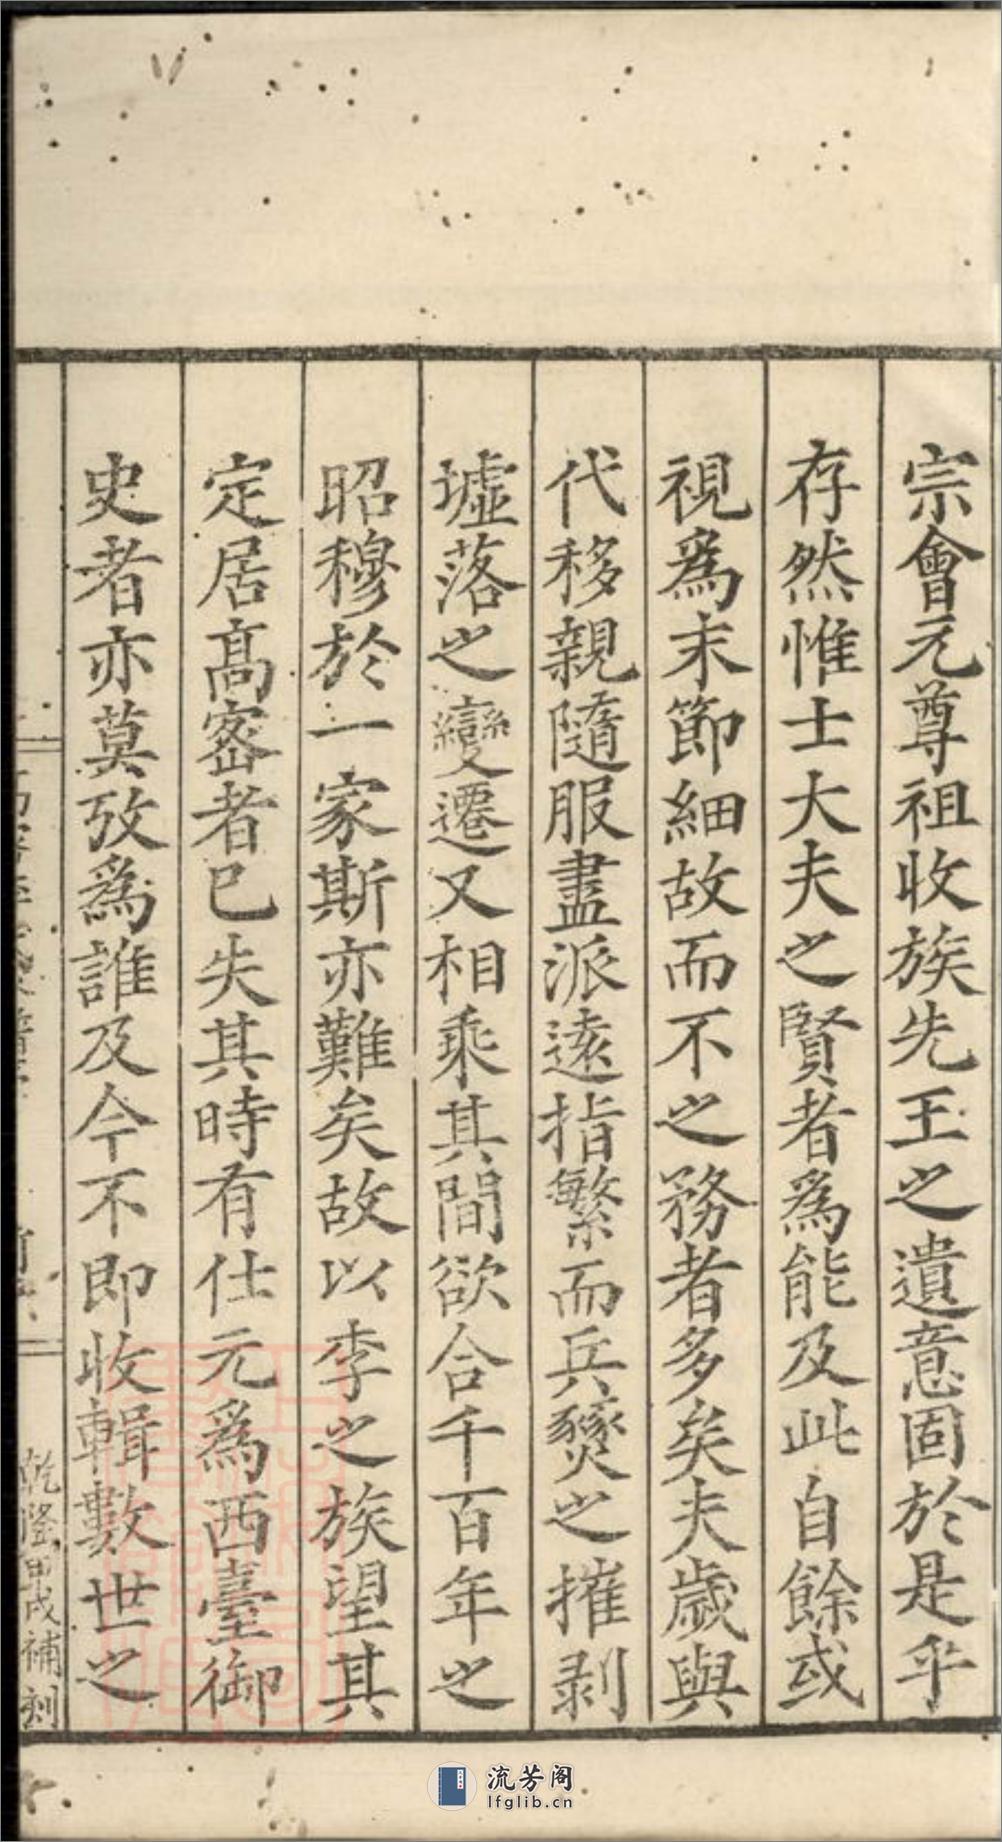 宗會元尊祖收族先王之遺意固於是乎
存然惟士大夫之賢者爲能及此自餘或
視爲末節細故而不之務者多矣夫歲與
代移親隨服盡派遠指繁而兵燹之摧剥
墟落之變遷又相乘其間欲合千百年之
昭穆於一家斯亦難矣故以李之族望其
定居高宻者已失其時有仕元爲西臺御
史者亦莫攷爲誰及今不即收輯數世之
乾隆甲戌補刻
流芳阁
lfglib.cn